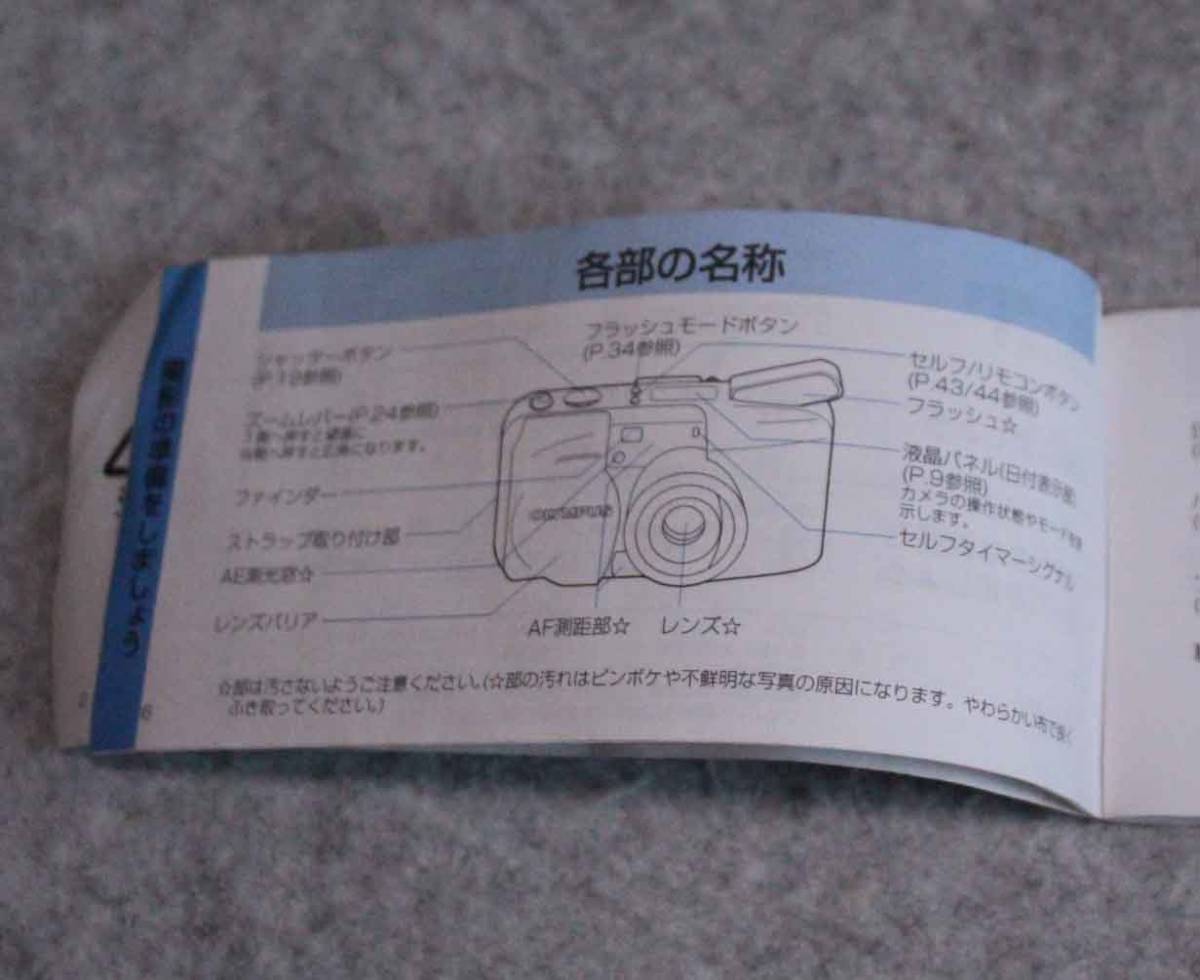 各部の名称
シャッターボタン
(P.12参照)
ズームレバー(P.24参照)
ファインダー
ストラップ取り付け部
AE測光窓☆
レンズバリア
フラッシュモードボタン
(P.34参照)
セルフ/リモコンボタン
(P.43/44参照)
フラッシュ☆
液晶パネル(日付表示部)
(P.9参照)
カメラの操作状態やモードを表
示します。
セルフタイマーシグナル
OLYMPUS
AF測距部☆
レンズ☆
☆部は汚さないようご注意ください。(☆部の汚れはピンボケや不鮮明な写真の原因になります。やわらかい布で良く
ふき取ってください。)
の準備をしましょう
6